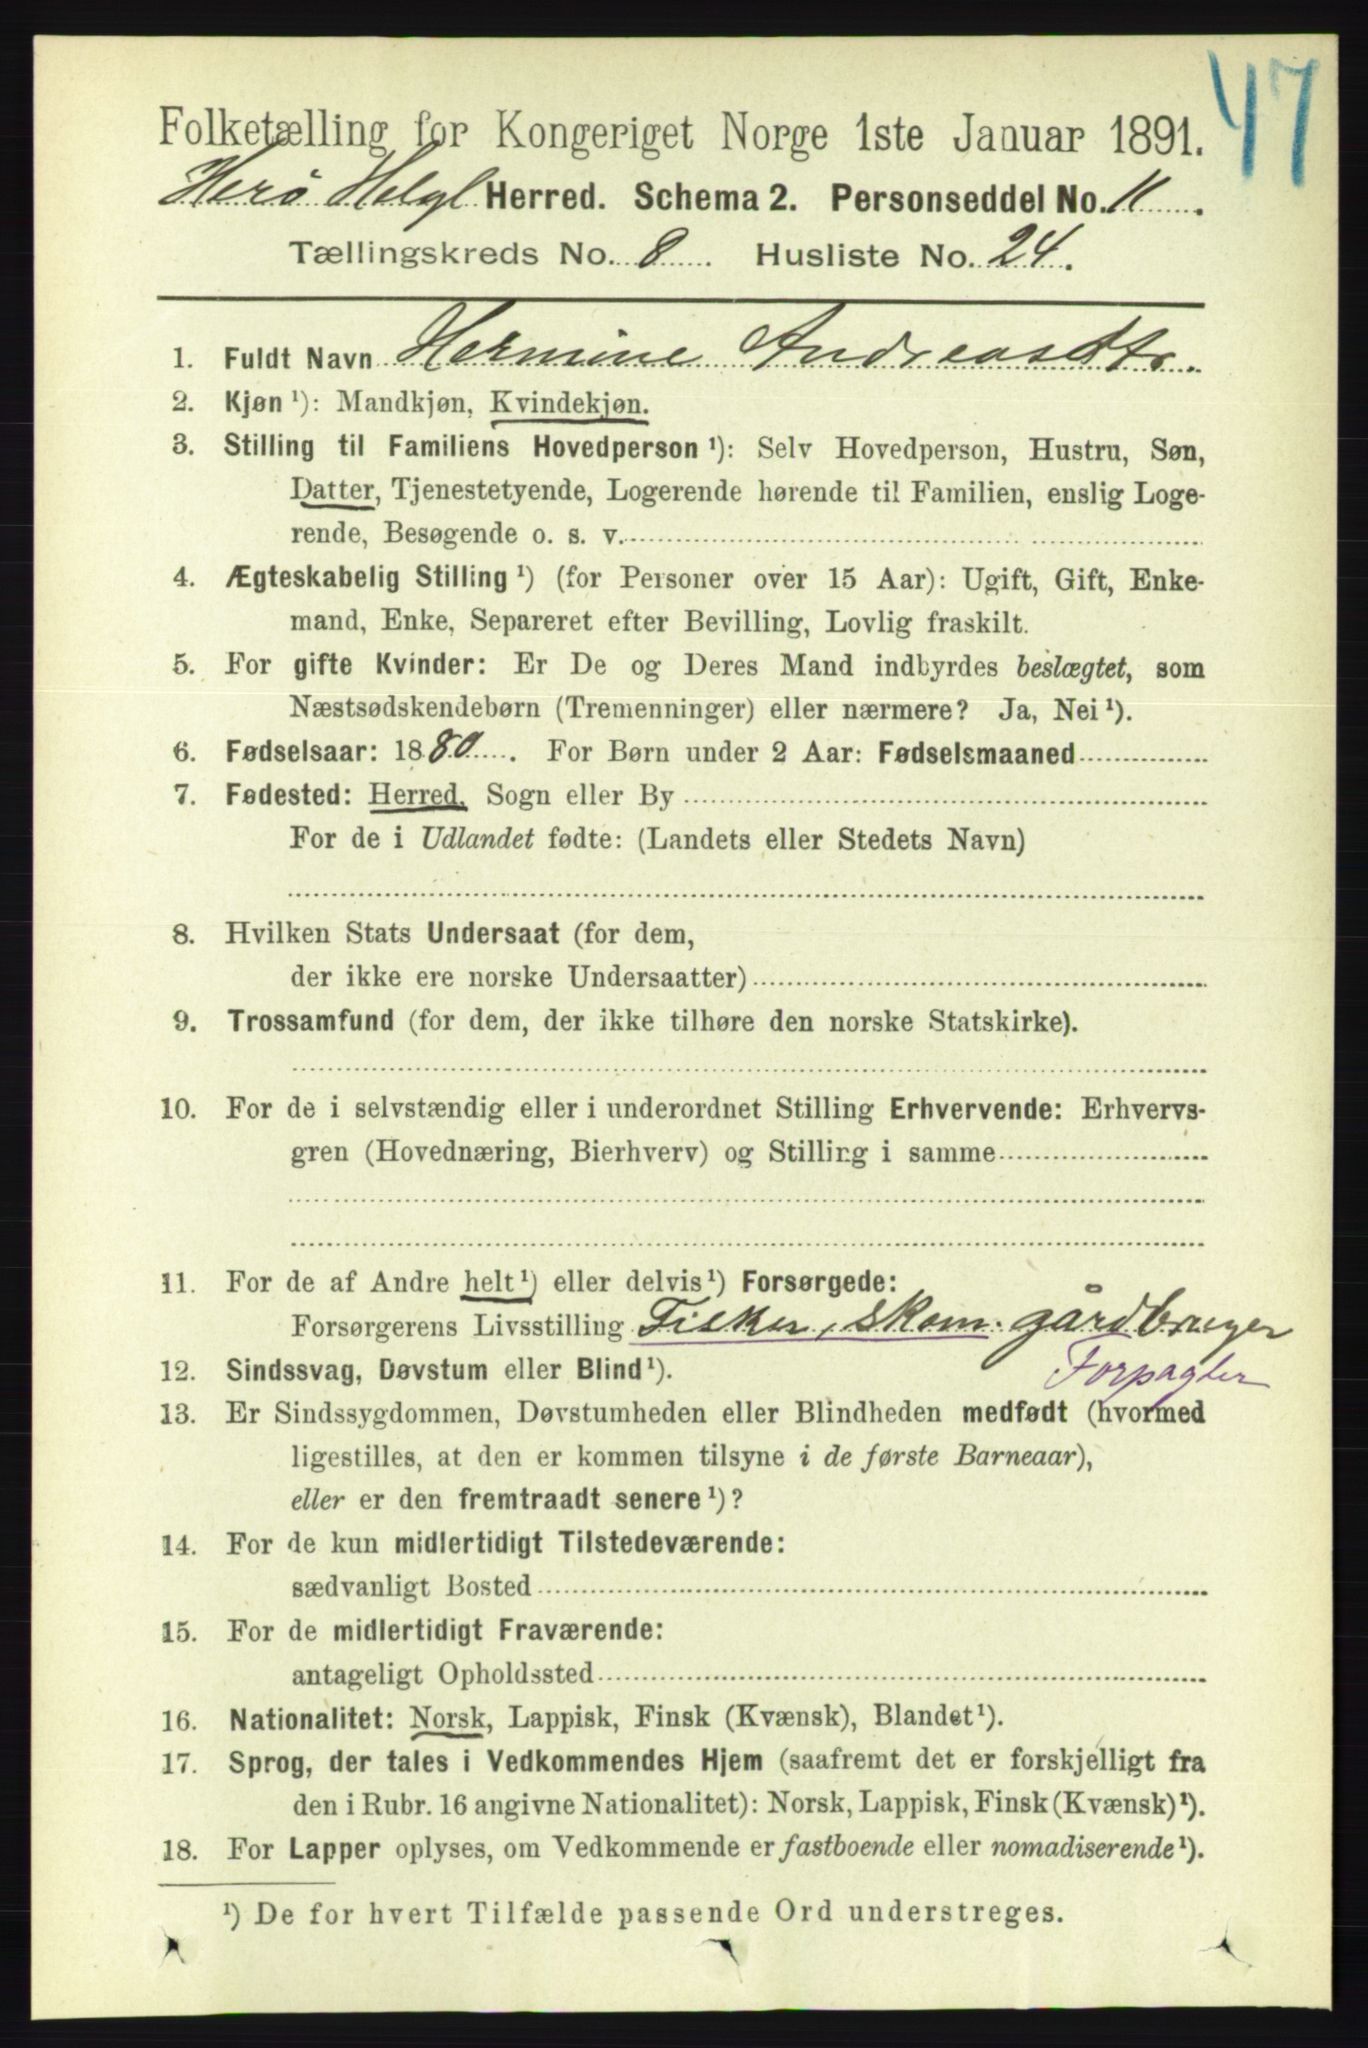 47
Folketælling for Kongeriget Norge 1ste Januar 1891.
Herø Helgl Herred. Schema 2. Personseddel No. 11.
Tællingskreds No. 8. Husliste No. 24.
1. Fuldt Navn Hermine Andreasdtr.
2. Kjøn ¹): Mandkjøn, Kvindekjøn.
3. Stilling til Familiens Hovedperson ¹): Selv Hovedperson, Hustru, Søn,
Datter, Tjenestetyende, Logerende hørende til Familien, enslig Loge-
rende, Besøgende o. s. v.
4. Ægteskabelig Stilling ¹) (for Personer over 15 Aar): Ugift, Gift, Enke-
mand, Enke, Separeret efter Bevilling, Lovlig fraskilt.
5. For gifte Kvinder: Er De og Deres Mand indbyrdes beslægtet, som
Næstsødskendebørn (Tremenninger) eller nærmere? Ja, Nei ¹).
6. Fødselsaar: 1880. For Børn under 2 Aar: Fødselsmaaned
7. Fødested: Herred, Sogn eller By
For de i Udlandet fødte: (Landets eller Stedets Navn)
8. Hvilken Stats Undersaat (for dem,
der ikke ere norske Undersaatter)
9. Trossamfund (for dem, der ikke tilhøre den norske Statskirke).
10. For de i selvstændig eller i underordnet Stilling Erhvervende: Erhvervs-
gren (Hovednæring, Bierhverv) og Stilling i samme
11. For de af Andre helt ¹) eller delvis ¹) Forsørgede:
Forsørgerens Livsstilling Fisker, skom. gårdbruger
Forpagter
12. Sindssvag, Døvstum eller Blind ¹).
13. Er Sindssygdommen, Døvstumheden eller Blindheden medfødt (hvormed
ligestilles, at den er kommen tilsyne i de første Barneaar),
eller er den fremtraadt senere ¹)?
14. For de kun midlertidigt Tilstedeværende:
sædvanligt Bosted
15. For de midlertidigt Fraværende:
antageligt Opholdssted
16. Nationalitet: Norsk, Lappisk, Finsk (Kvænsk), Blandet ¹).
17. Sprog, der tales i Vedkommendes Hjem (saafremt det er forskjelligt fra
den i Rubr. 16 angivne Nationalitet): Norsk, Lappisk, Finsk (Kvænsk) ¹).
18. For Lapper oplyses, om Vedkommende er fastboende eller nomadiserende ¹).
¹) De for hvert Tilfælde passende Ord understreges.